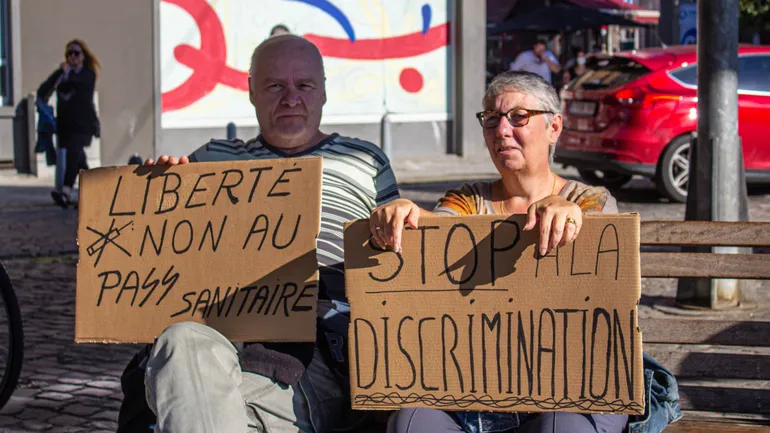 LIBERTÉ
NON AU
PASS SANITAIRE
STOP À LA
DISCRIMINATION